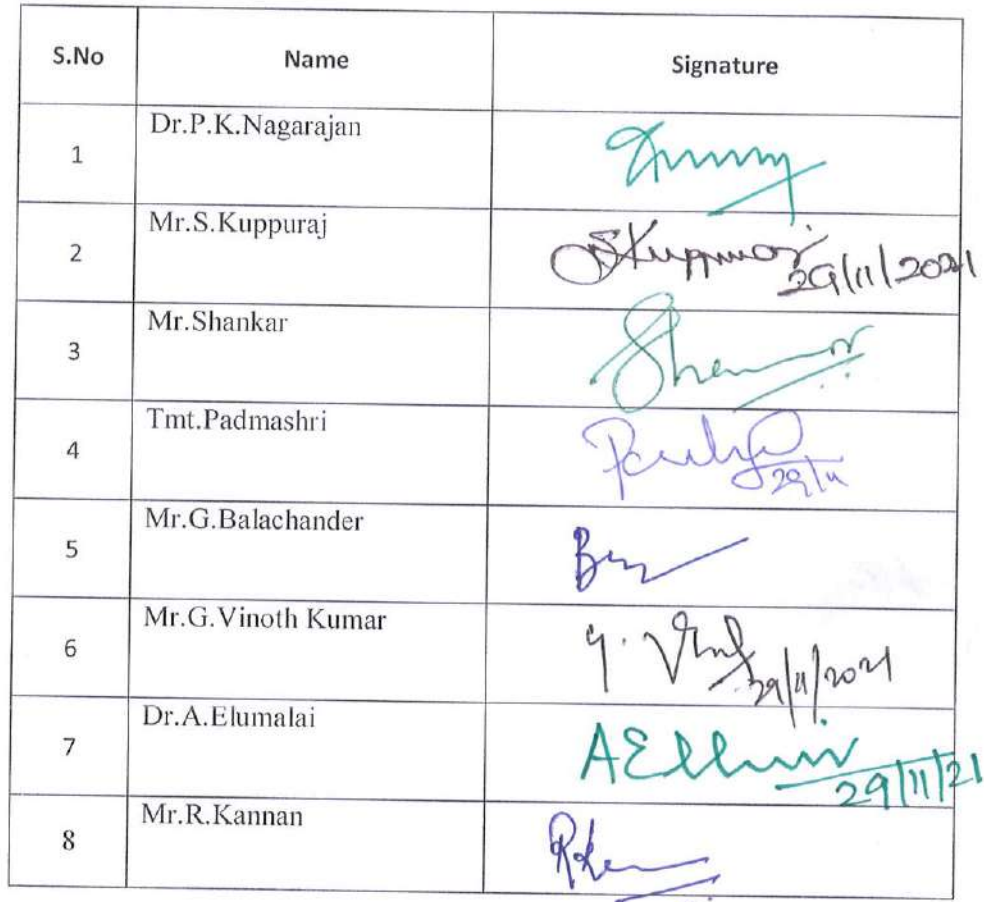 S.No Name Signature
1 Dr.P.K.Nagarajan
2 Mr.S.Kuppuraj SKuppuraj 29/11/2021
3 Mr.Shankar
4 Tmt.Padmashri 29/11
5 Mr.G.Balachander
6 Mr.G.Vinoth Kumar 29/11/2021
7 Dr.A.Elumalai 29/11/21
8 Mr.R.Kannan